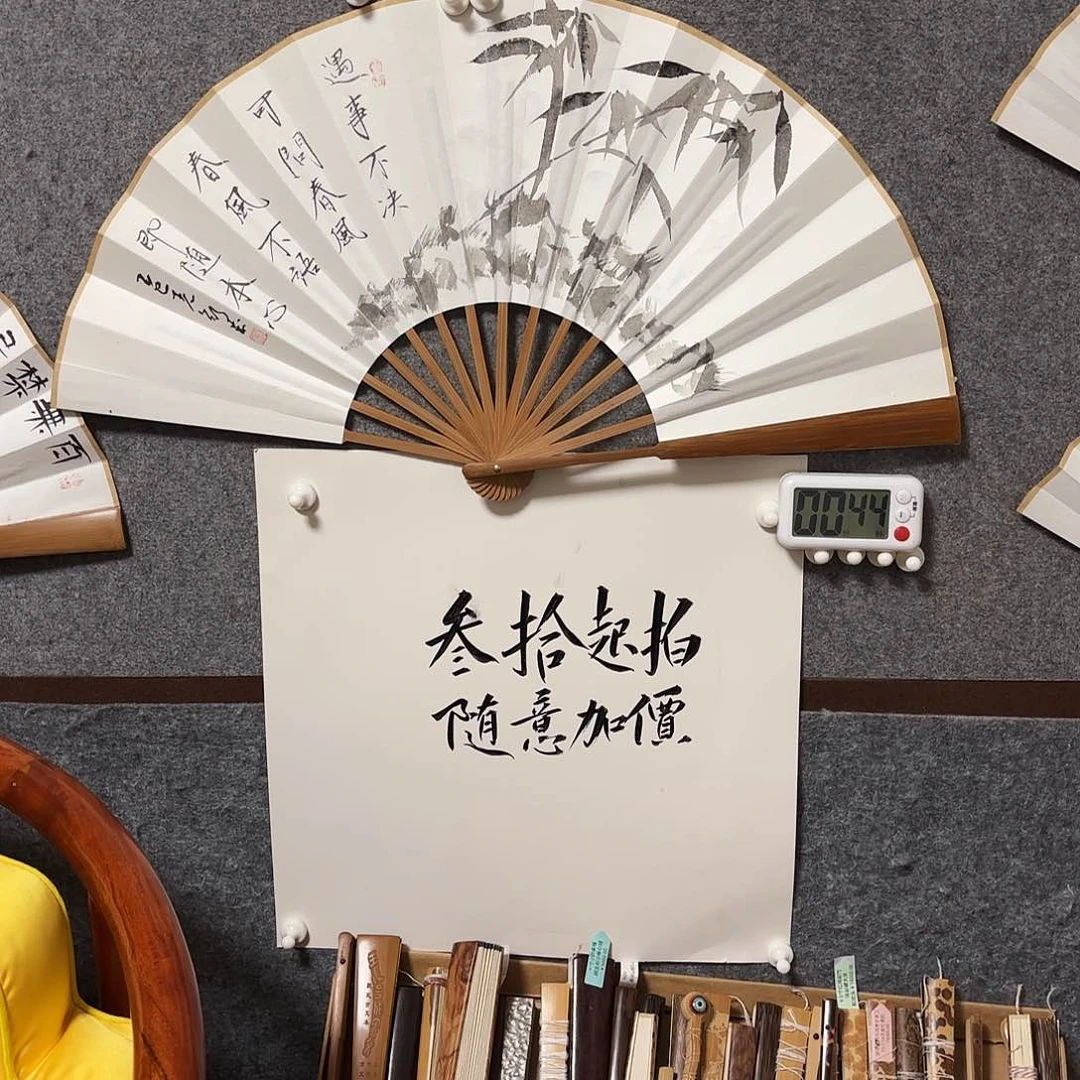 遇事不决
可問春風
春風不語
即随本心
百無禁忌
00 44
叁拾起拍
随意加價